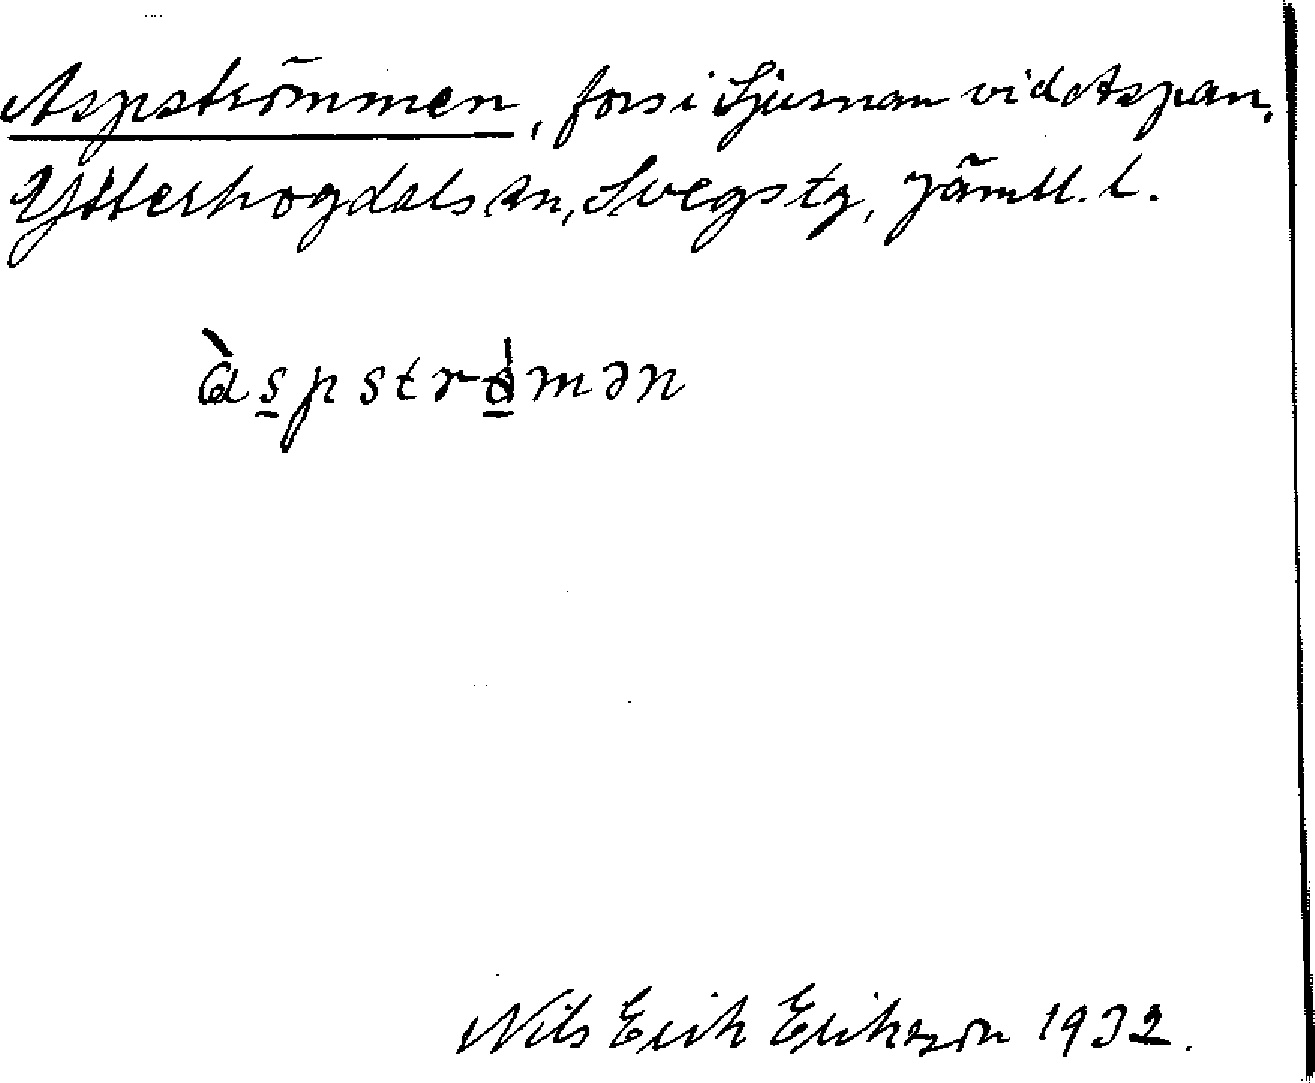 Aspströmmen, fors i Ljusnan vid Aspan,
Ytterhogdals sn, Svegs tg, Jämtl. l.
àspströmən
Nils Erik Erikszon 1932.